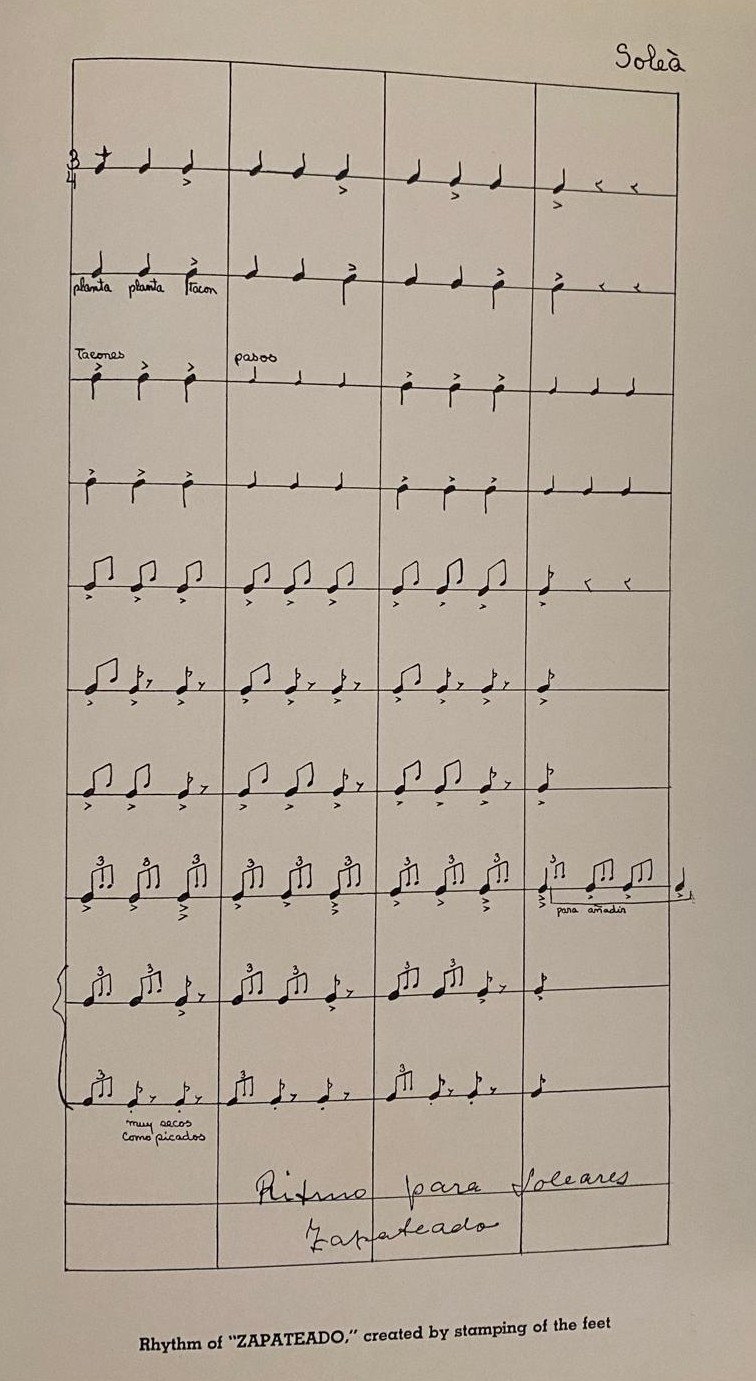 Soleà
3
4
planta planta tacon
Tacones pasos
3 3 3 3 3 3 3 3 3 3
para añadir
3 3 3 3 3 3
3 3 3
muy secos
como picados
Ritmo para Soleares
Zapateado
Rhythm of "ZAPATEADO," created by stamping of the feet